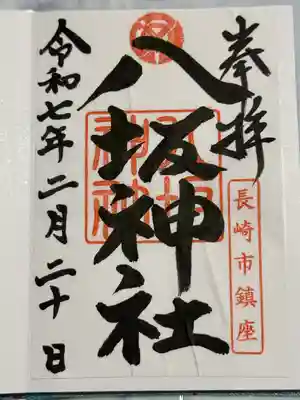 奉拝
長崎市鎮座
八坂神社
令和七年二月二十日